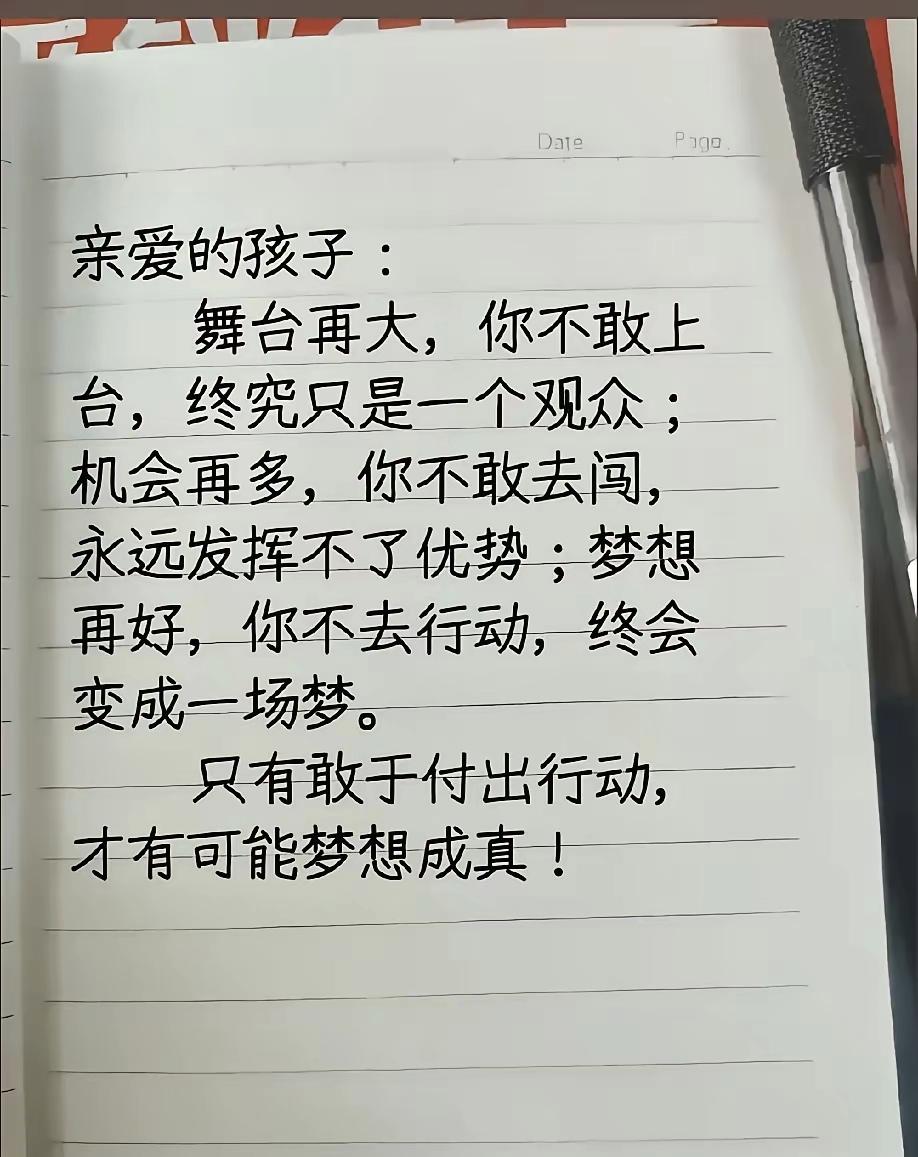 Date Page.
亲爱的孩子：
舞台再大，你不敢上
台，终究只是一个观众；
机会再多，你不敢去闯，
永远发挥不了优势；梦想
再好，你不去行动，终会
变成一场梦。
只有敢于付出行动，
才有可能梦想成真！